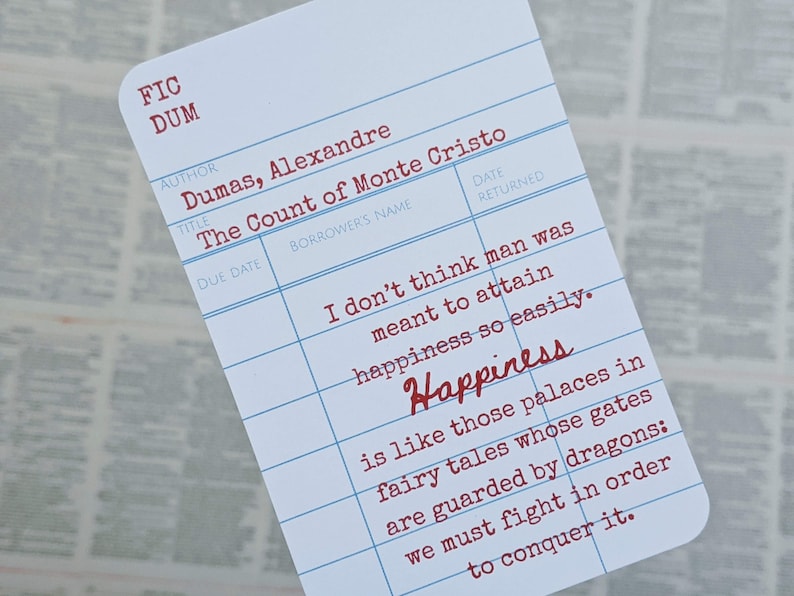 FIC
DUM
AUTHOR
Dumas, Alexandre
TITLE
The Count of Monte Cristo
DUE DATE
BORROWER'S NAME
DATE
RETURNED
I don't think man was
meant to attain
happiness so easily.
Happiness
is like those palaces in
fairy tales whose gates
are guarded by dragons:
we must fight in order
to conquer it.